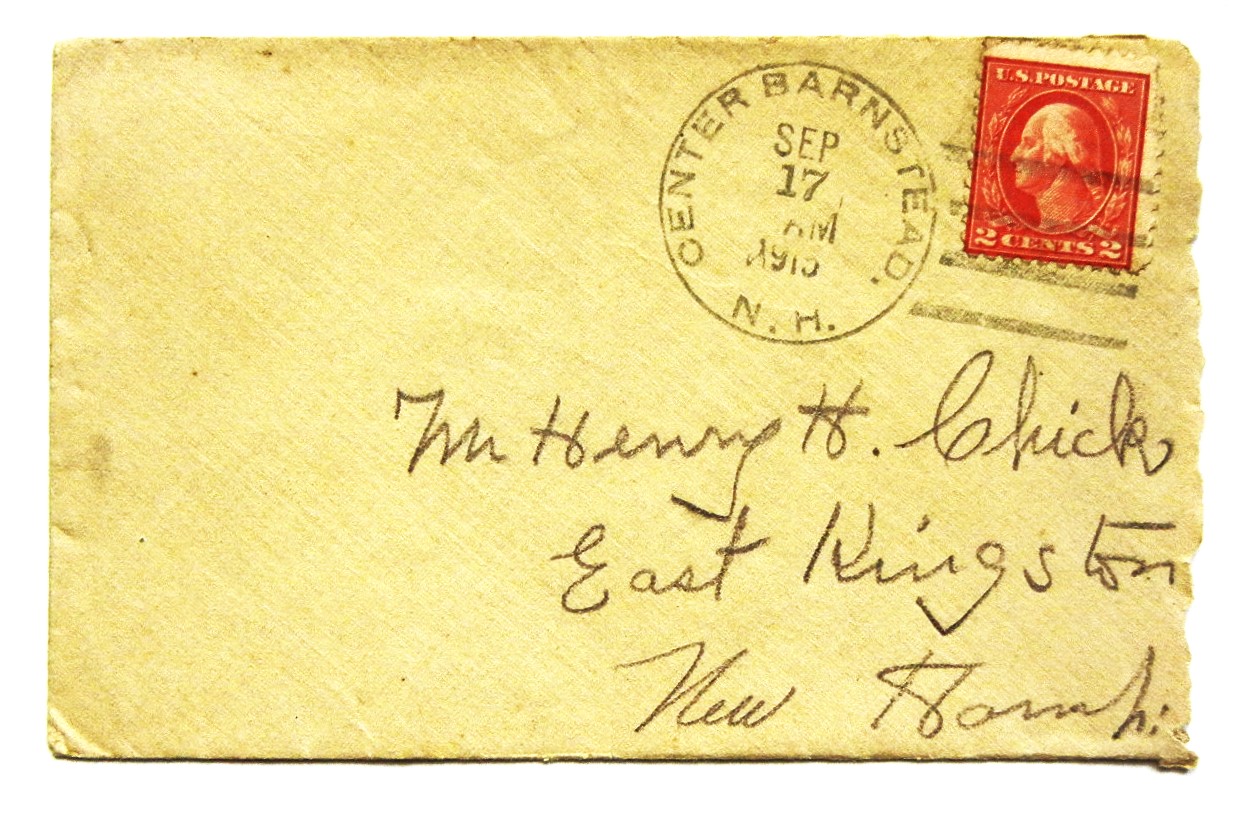 CENTER BARNSTEAD.
N. H.
SEP
17
AM
U.S. POSTAGE
2 CENTS 2
Mr Henry H. Chick
East Kingston
New Hamp